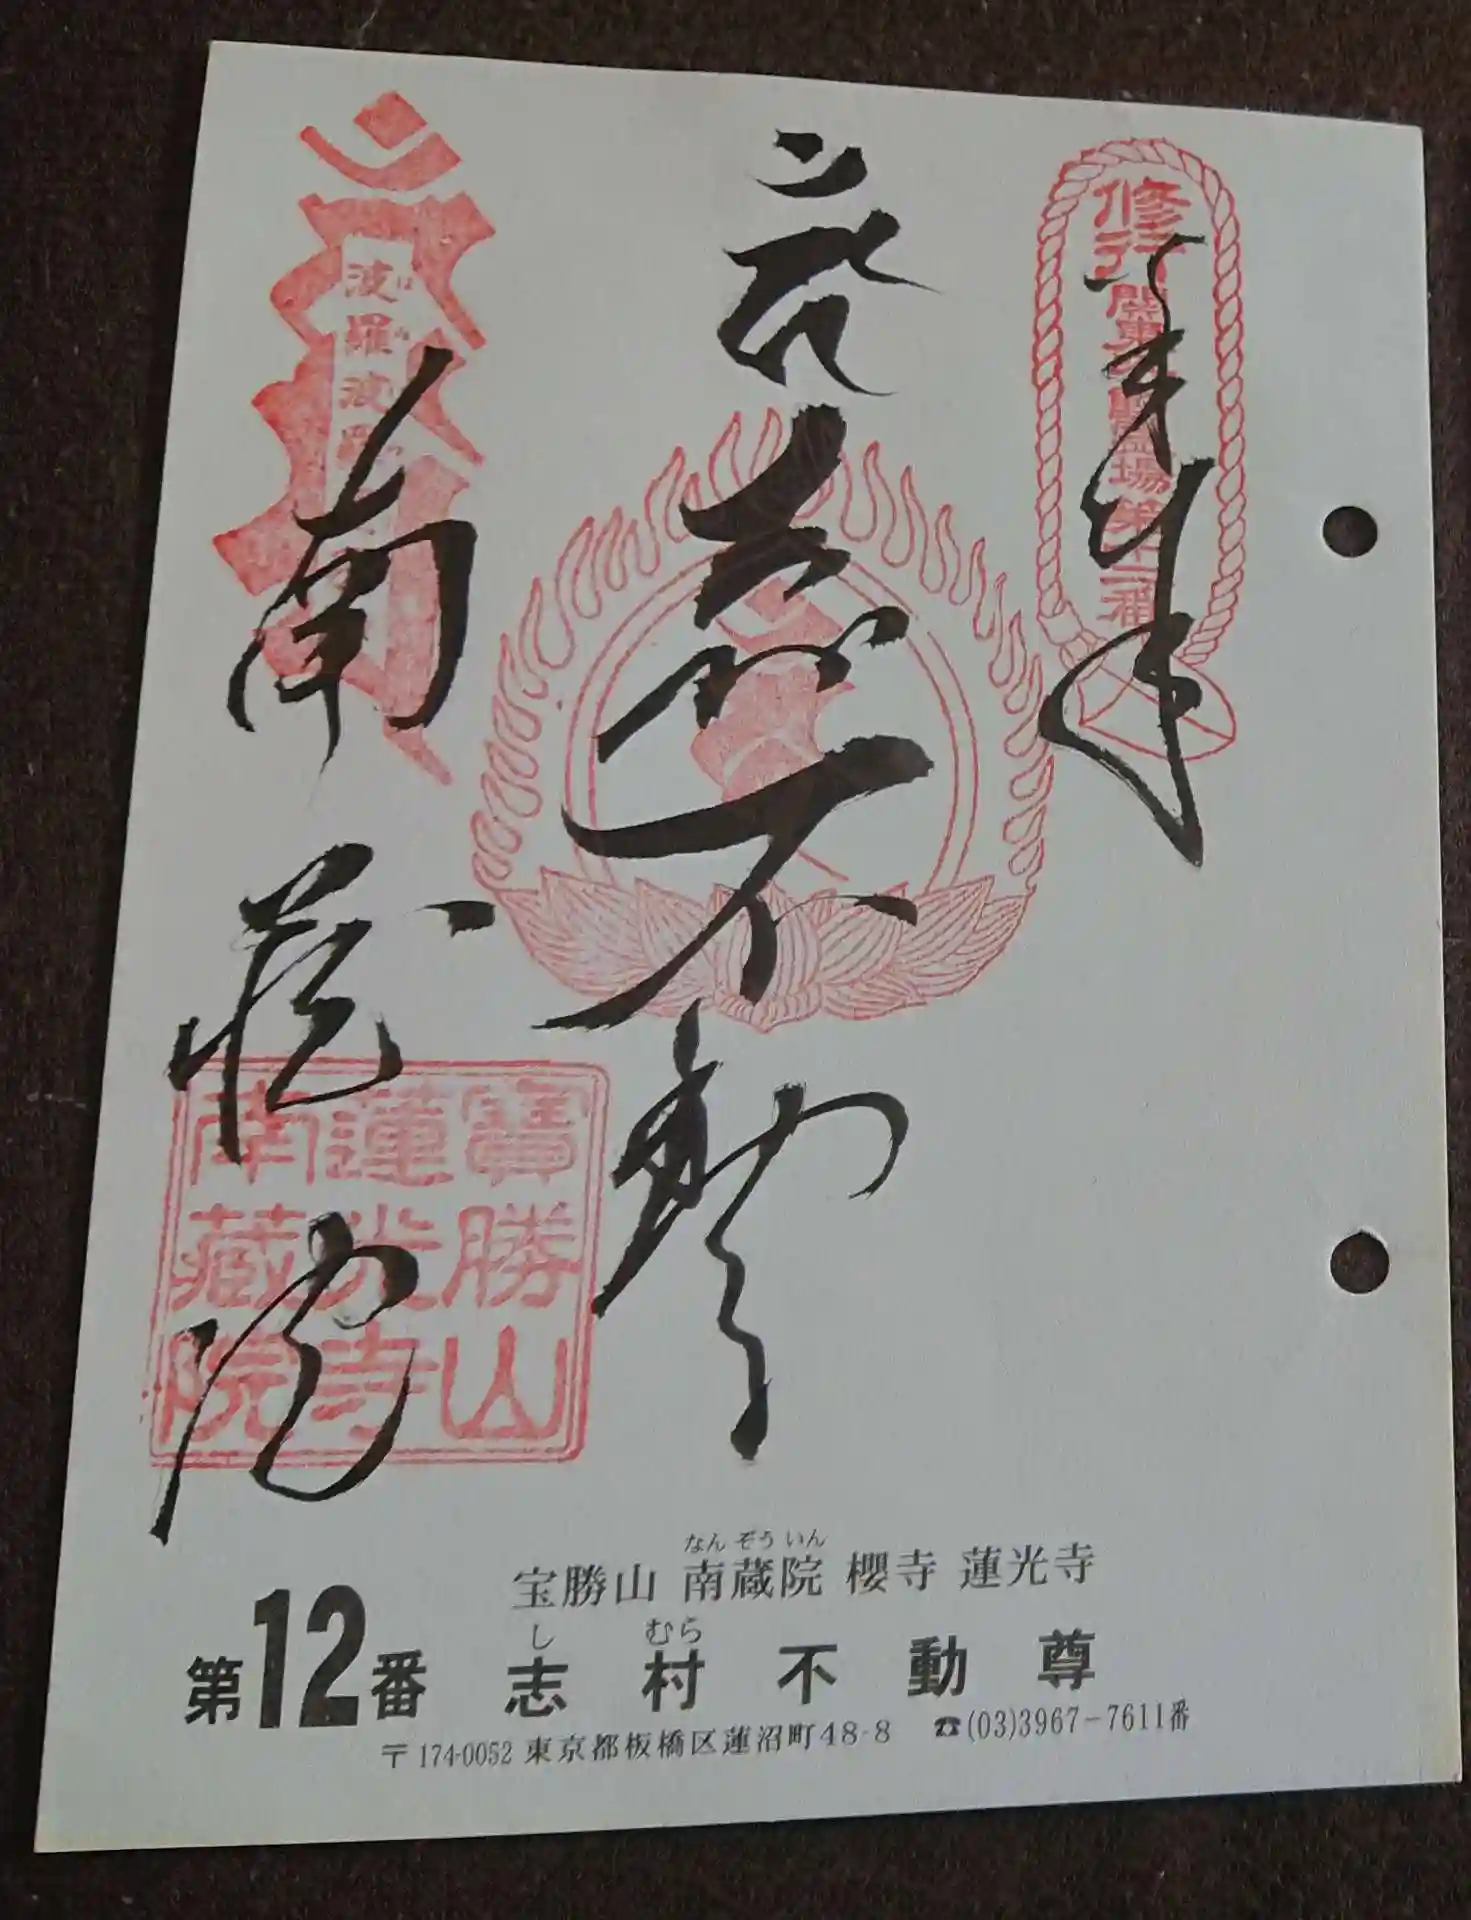 奉拝
修行
関東三十六不動霊場第十二番
志村不動
南蔵院
波羅波羅
寶勝山
蓮光寺
南蔵院
なんぞういん
宝勝山 南蔵院 櫻寺 蓮光寺
し むら
第12番 志村不動尊
〒174-0052 東京都板橋区蓮沼町48-8 ☎(03)3967-7611番